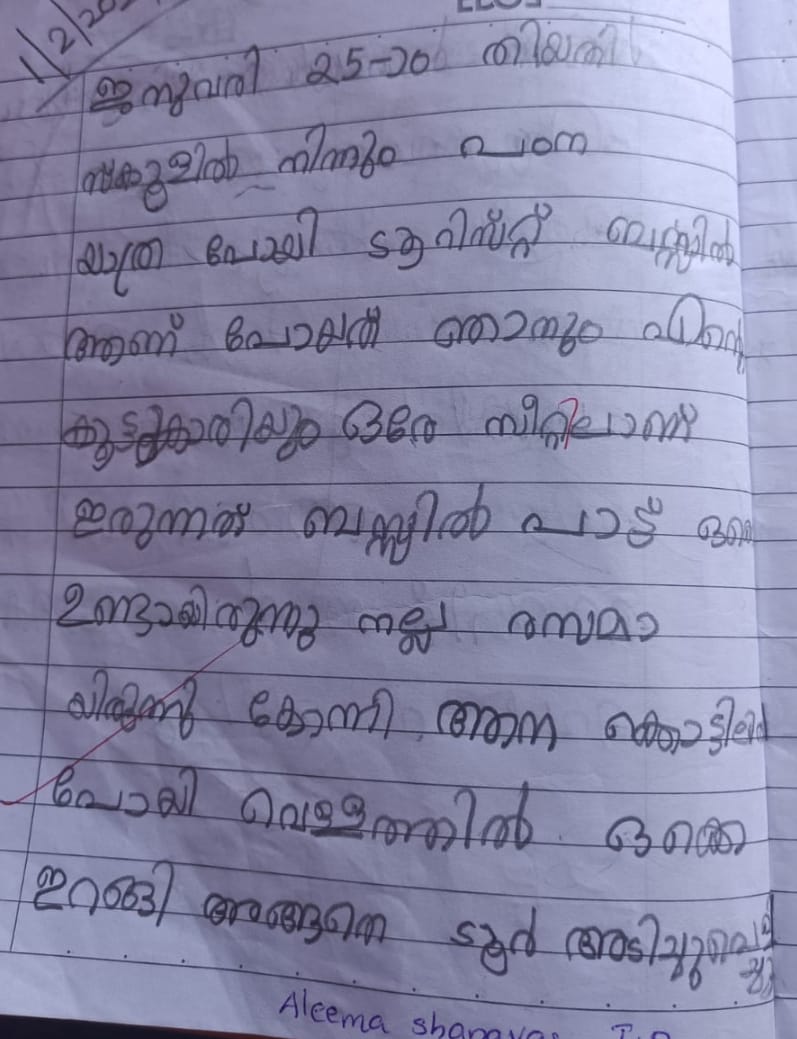 1/2/20
ജനുവരി 25-ാo തിയതി
സ്കൂളിൽ നിന്നും പഠന
യാത്ര പോയി ടൂറിസ്റ്റ് ബസ്സിൽ
ആണ് പോയത് ഞാനും എന്റെ
കൂട്ടുകാരിയും ഒരേ സീറ്റിലാണ്
ഇരുന്നത് ബസ്സിൽ പാട് ഒക്കെ
ഉണ്ടായിരുന്നു നല്ല രസമാ
യിരുന്നു കോന്നി ആന കൊട്ടിലിൽ
പോയി വെള്ളത്തിൽ ഒക്കെ
ഇറങ്ങി അങ്ങനെ ടൂർ അടിച്ചുപൊളി
ച്ചു
Aleema